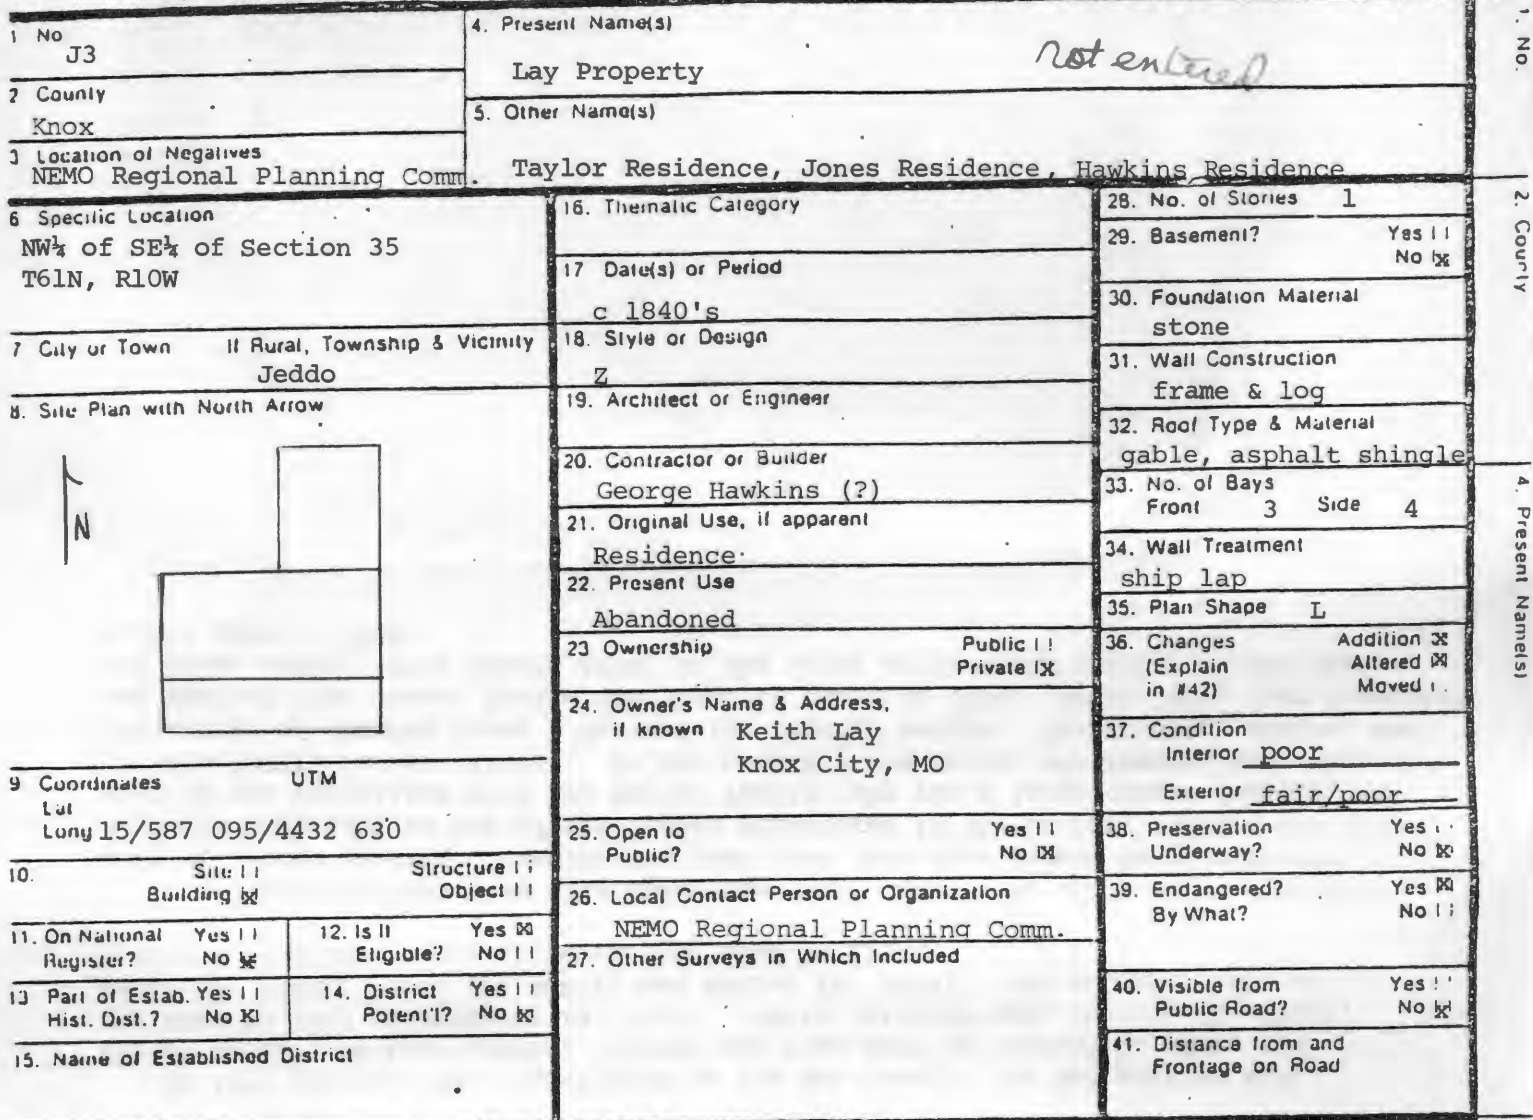 1 No
J3
2 County
Knox
3 Location of Negatives
NEMO Regional Planning Comm.
4. Present Name(s)
Lay Property
not entered
5. Other Name(s)
Taylor Residence, Jones Residence, Hawkins Residence
6 Specific Location
NW¼ of SE¼ of Section 35
T61N, R10W
7 City or Town If Rural, Township & Vicinity
Jeddo
8. Site Plan with North Arrow
N
9 Coordinates UTM
Lat
Long 15/587 095/4432 630
10. Site [ ] Structure [ ]
Building [x] Object [ ]
11. On National Yes [ ]
Register? No [x]
12. Is It Yes [x]
Eligible? No [ ]
13 Part of Estab. Yes [ ]
Hist. Dist.? No [x]
14. District Yes [ ]
Potent'l? No [x]
15. Name of Established District
16. Thematic Category
17 Date(s) or Period
c 1840's
18. Style or Design
Z
19. Architect or Engineer
20. Contractor or Builder
George Hawkins (?)
21. Original Use, if apparent
Residence
22. Present Use
Abandoned
23 Ownership Public [ ]
Private [x]
24. Owner's Name & Address,
if known Keith Lay
Knox City, MO
25. Open to Yes [ ]
Public? No [x]
26. Local Contact Person or Organization
NEMO Regional Planning Comm.
27. Other Surveys in Which Included
28. No. of Stories 1
29. Basement? Yes [ ]
No [x]
30. Foundation Material
stone
31. Wall Construction
frame & log
32. Roof Type & Material
gable, asphalt shingle
33. No. of Bays
Front 3 Side 4
34. Wall Treatment
ship lap
35. Plan Shape L
36. Changes Addition [x]
(Explain Altered [x]
in #42) Moved [ ]
37. Condition
Interior poor
Exterior fair/poor
38. Preservation Yes [ ]
Underway? No [x]
39. Endangered? Yes [x]
By What? No [ ]
40. Visible from Yes [ ]
Public Road? No [x]
41. Distance from and
Frontage on Road
1. No.
2. County
4. Present Name(s)